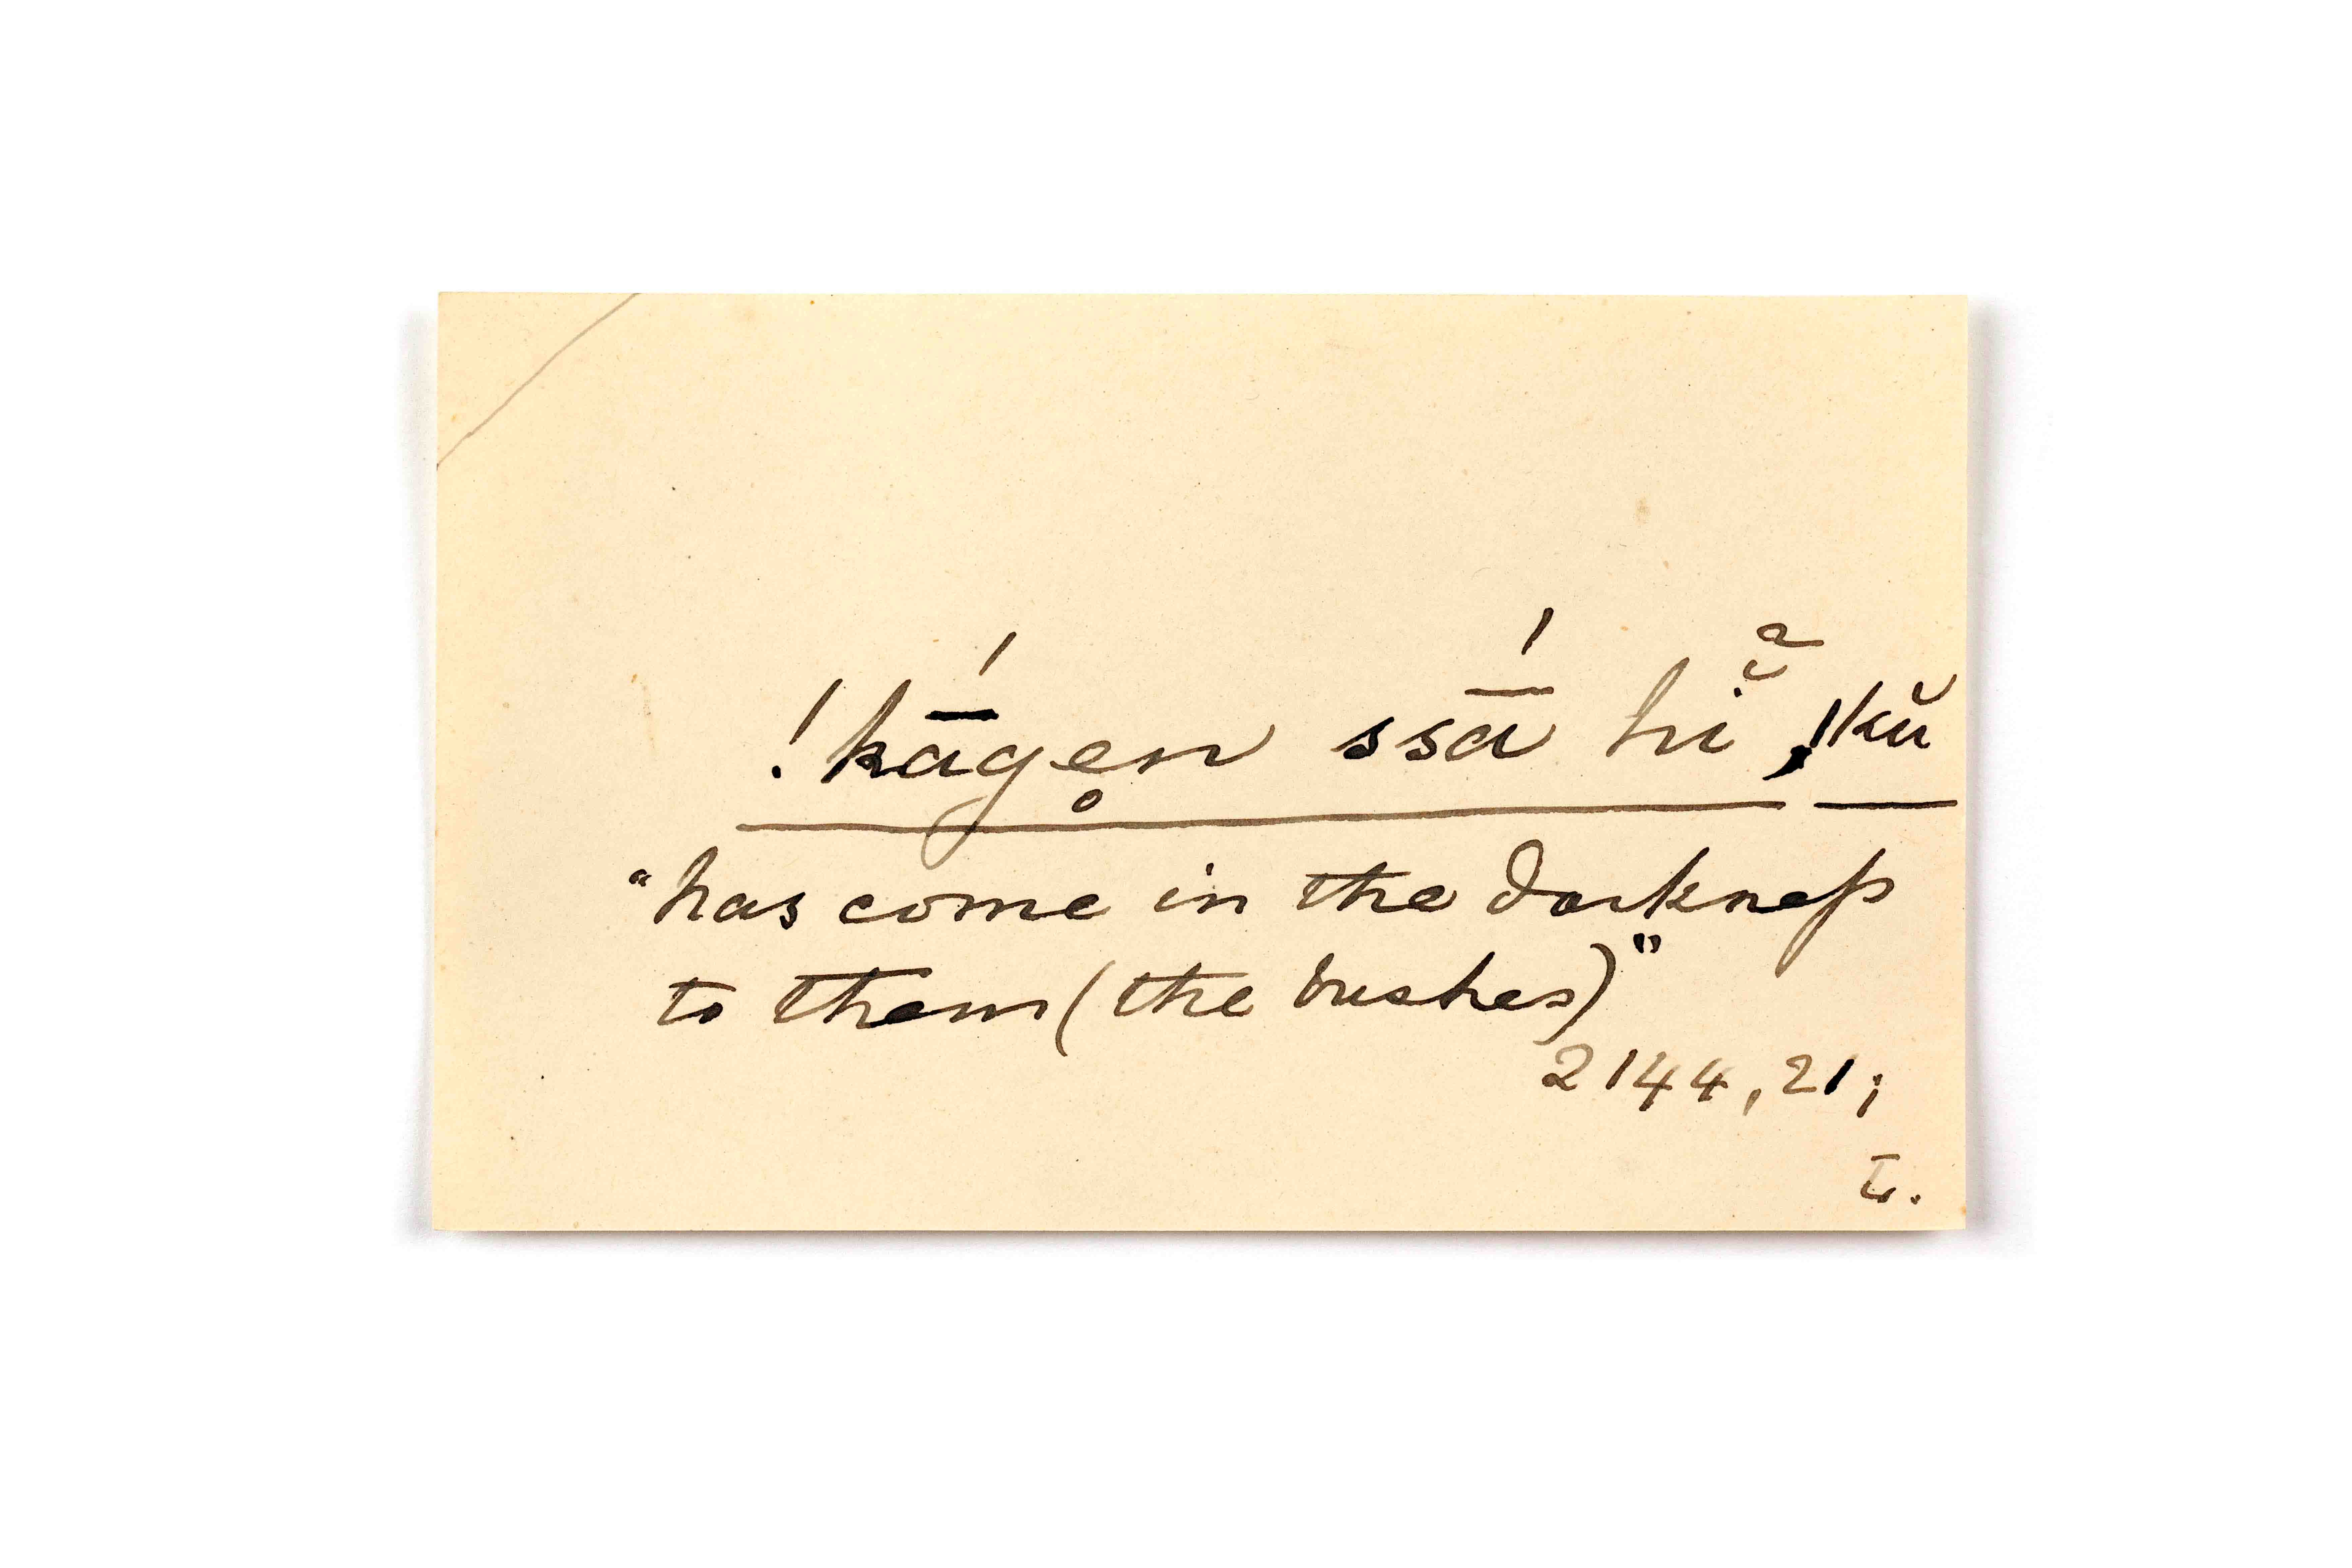 !kā́ge̥n ssā́ hĭ̃, !kŭ
"has come in the darkness
to them (the bushes)"
2144, 21;
L.